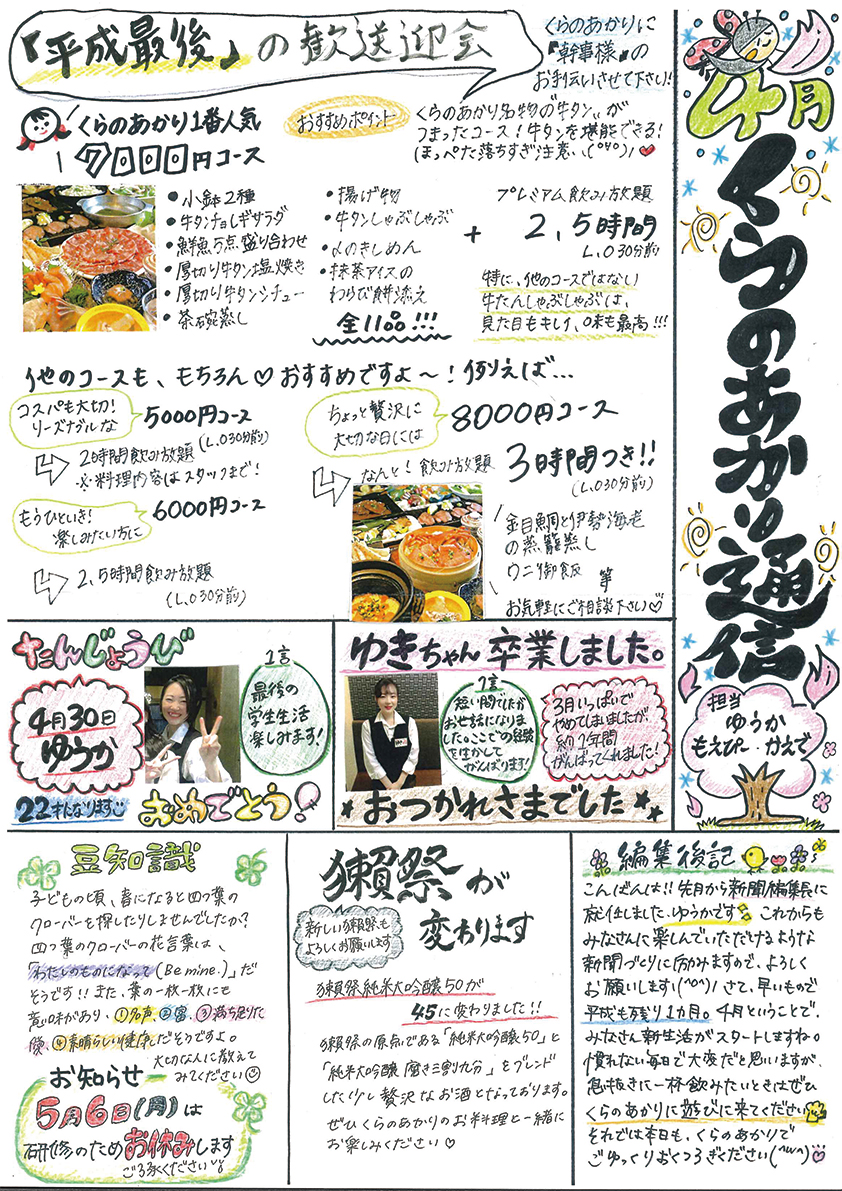 4月
くらのあかり通信
担当
ゆうか
もえぴ〜・かえで
『平成最後』の歓送迎会
くらのあかりに
『幹事様』の
お手伝いさせて下さい!!
くらのあかり1番人気
7000円コース
おすすめポイント
くらのあかり名物の"牛タン"が
つまったコース!牛タンを堪能できる!
ほっぺた落ちすぎ注意、(°∀°)!
・小鉢2種
・牛タンチョレギサラダ
・鮮魚5点盛り合わせ
・厚切り牛タン塩焼き
・厚切り牛タンシチュー
・茶碗蒸し
・揚げ物
・牛タンしゃぶしゃぶ
・〆のきしめん
・抹茶アイスの
わらび餅添え
全11品!!!
+
プレミアム飲み放題
2,5時間
L.O30分前
特に、他のコースではない
牛たんしゃぶしゃぶは、
見た目もキレイ、味も最高!!!
他のコースも、もちろん♡おすすめですよ〜!例えば…
コスパも大切!
リーズナブルな
5000円コース
(L.O30分前)
2時間飲み放題
※料理内容はスタッフまで!
もうひといき!
楽しみたい方に
6000円コース
2,5時間飲み放題
(L.O30分前)
ちょっと贅沢に
大切な日には
8000円コース
なんと!飲み放題
3時間つき!!
(L.O30分前)
金目鯛と伊勢海老
の蒸籠蒸し
ウニ御飯 等
お気軽にご相談下さい♡
たんじょうび
4月30日
ゆうか
22才になります
1言
最後の
学生生活
楽しみます!
おめでとう!
ゆきちゃん卒業しました。
1言
短い間でしたが
お世話になりま
した。ここでの経験
をいかして
がんばります!
3月いっぱいで
やめてしまいましたが
約1年間
がんばってくれました!
おつかれさまでした
豆知識
子どもの頃、春になると四つ葉の
クローバーを探したりしませんでしたか?
四つ葉のクローバーの花言葉は、
「わたしのものになって(Be mine.)」だ
そうです!!また、葉の一枚一枚にも
意味があり、①名声、②富、③満ち足りた
愛、④素晴らしい健康、だそうですよ。
大切な人に教えて
みてください☺
お知らせ
5月6日(月)は
研修のためお休みします
ご了承ください
獺祭が
変わります
新しい獺祭も
よろしくお願いします
獺祭純米大吟醸50が
45に変わりました!!
獺祭の原点である「純米大吟醸50」と
「純米大吟醸 磨き三割九分」をブレンド
した少し贅沢なお酒となっております。
ぜひくらのあかりのお料理と一緒に
お楽しみください♡
編集後記
こんばんは!!先月から新聞編集長に
就任しました、ゆうかです これからも
みなさんに楽しんでいただけるような
新聞づくりに励みますので、よろしく
お願いします!(^o^)! さて、早いもので
平成も残り1カ月。4月ということで、
みなさん新生活がスタートしますね。
慣れない毎日で大変だと思いますが、
息抜きに一杯飲みたいときはぜひ
くらのあかりに遊びに来てください
それでは本日も、くらのあかりで
ごゆっくりおくつろぎください(^w^)♡